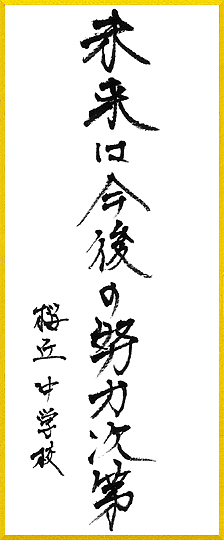 未来は今後の努力次第
桜丘中学校